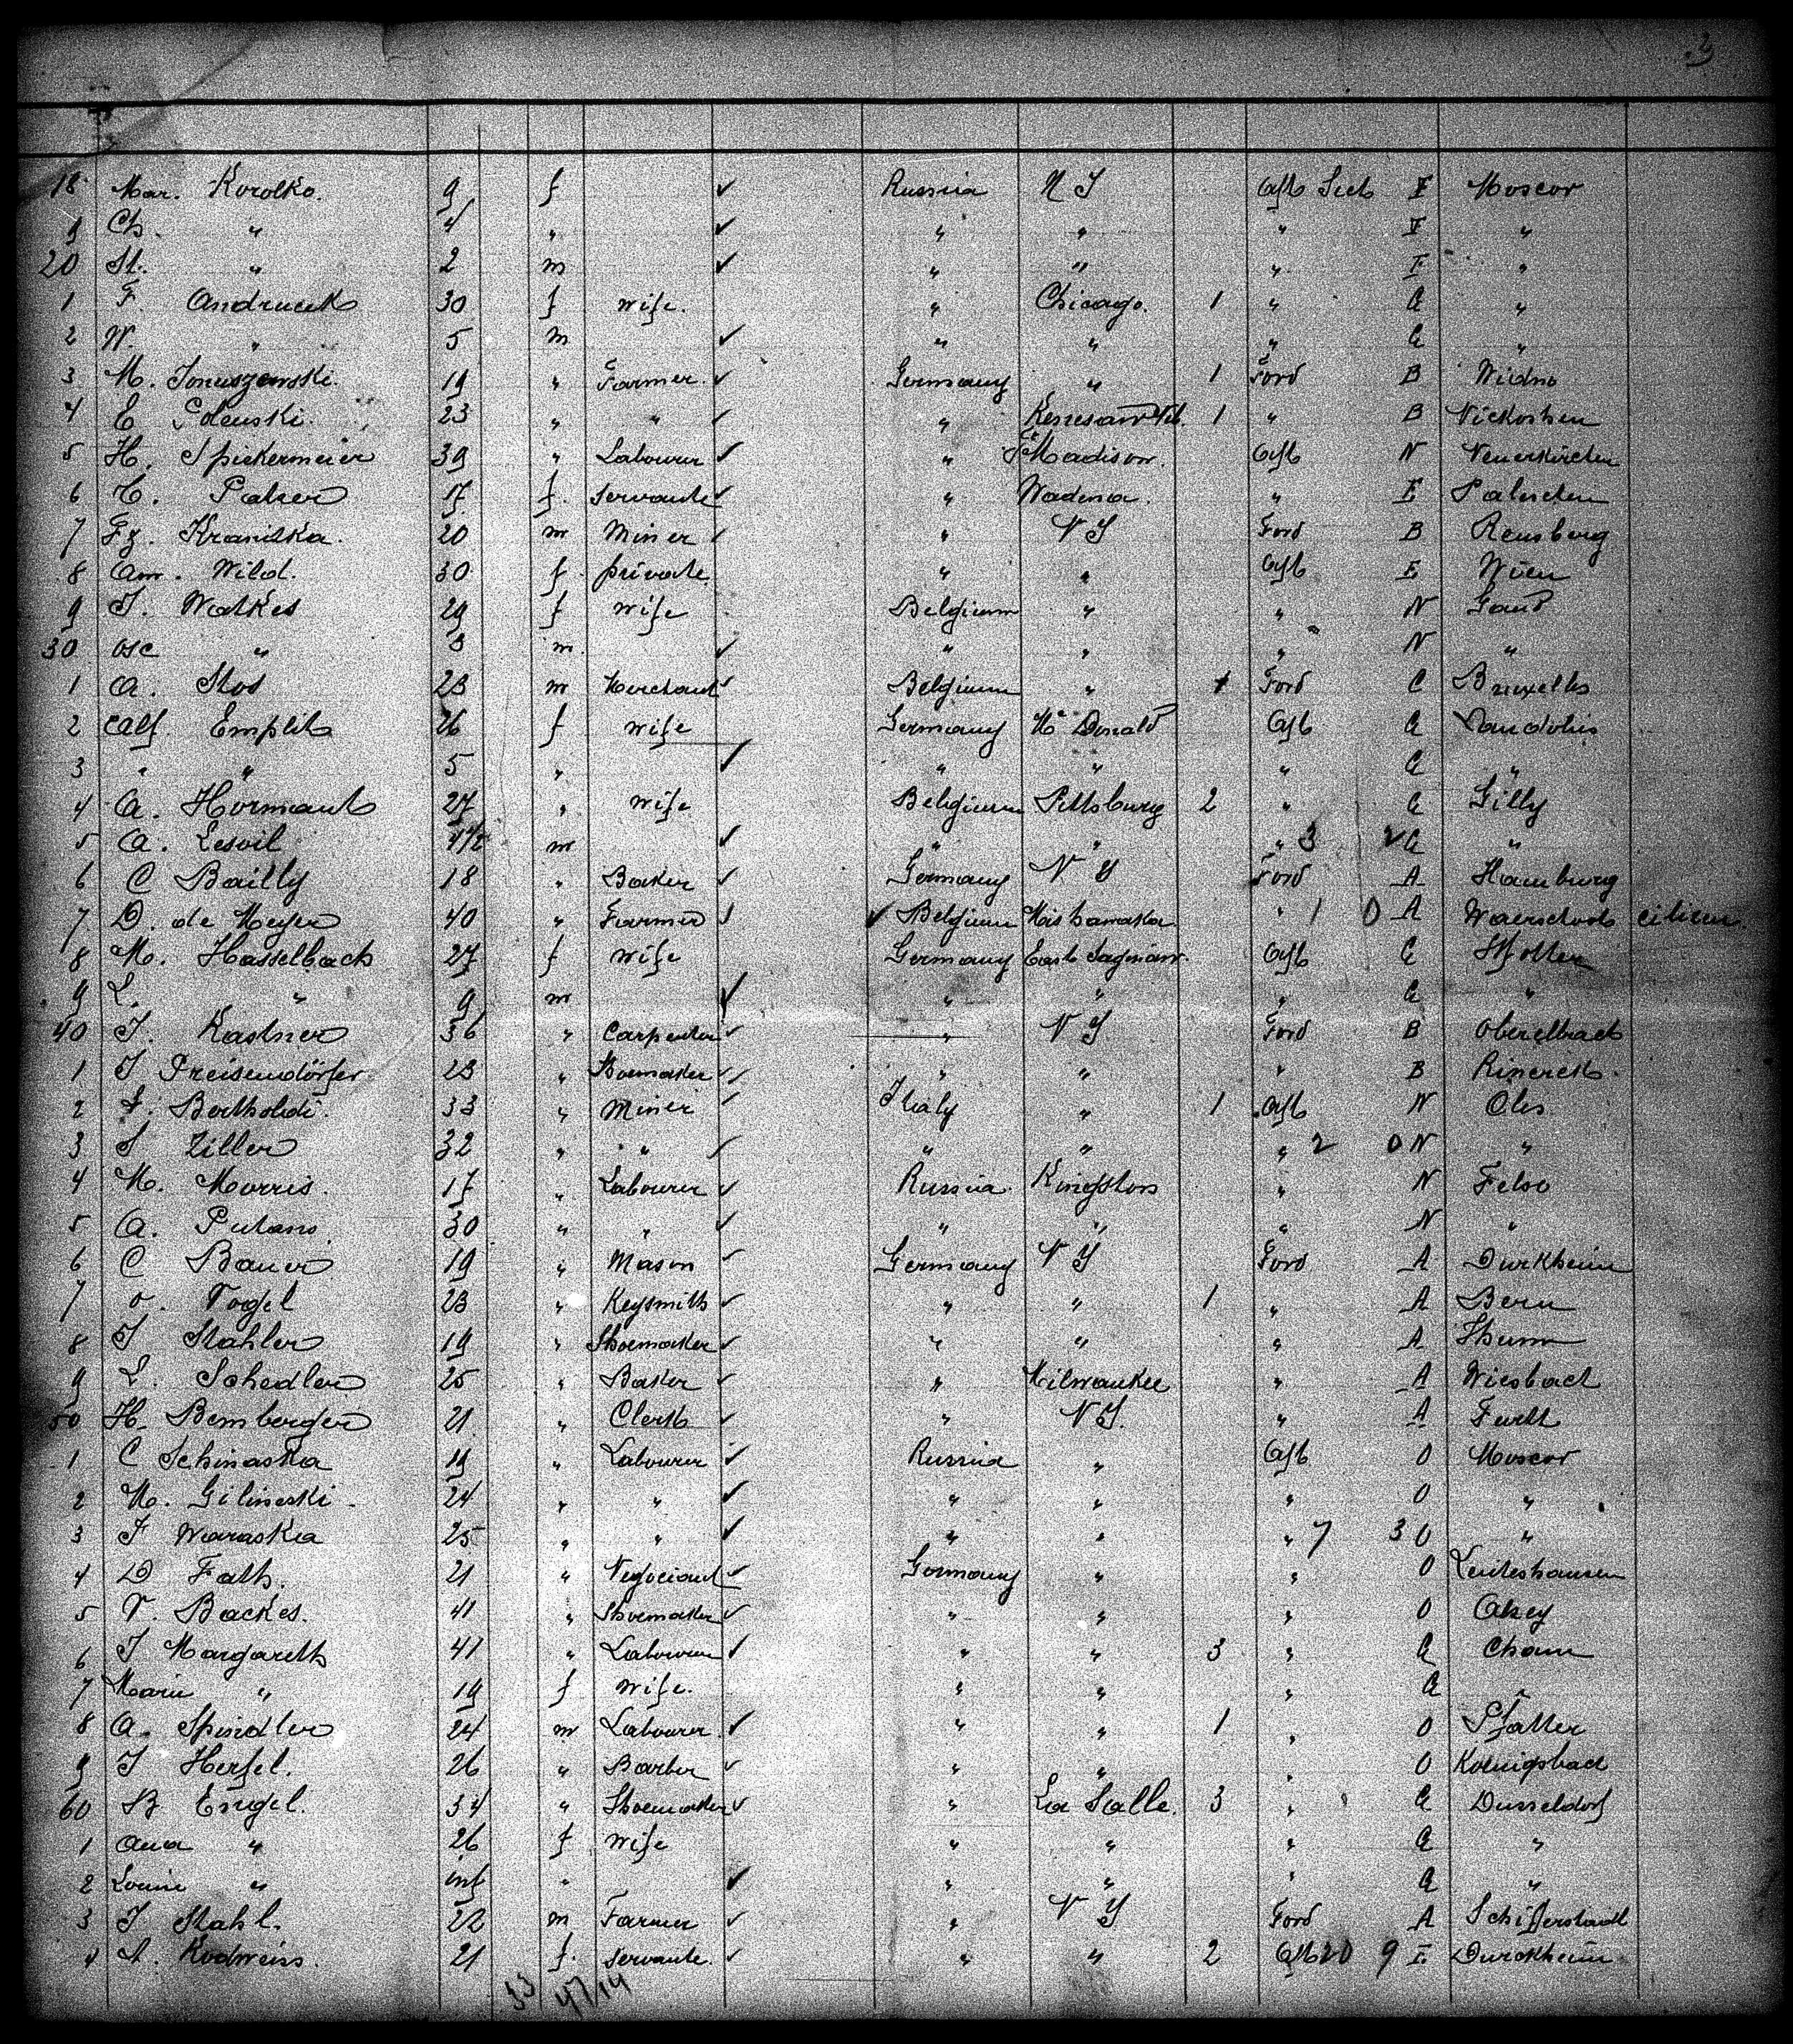 3
18 Mar. Korolko. 9 f ✓ Russia N Y Aft Sect E Moscov
9 Ch. " 4 " ✓ " " " E "
20 St. " 2 m ✓ " " " E "
1 F. Andruck 30 f wife. " Chicago. 1 " G "
2 W. " 5 m ✓ " " " G "
3 M. Jonuszewski. 19 " Farmer. ✓ Germany " 1 Ford B Widno
4 E Polenski. 23 " " ✓ " 1 " B
5 H. Spiekermeier 39 " Labourer ✓ " Madison. Aft N Neuerkirchen
6 17 f. Servante ✓ " Wadena. " E
7 Fz. Kraniska. 20 m Miner ✓ " N Y Ford B Rensberg
8 Am. Wild. 30 f private. " " Aft E Wien
9 J. Watkes 29 f wife Belgium " " N Gand
30 Osc " 3 m. ✓ " " " N "
1 A. Stos 23 m Merchant ✓ Belgium " 1 Ford C Bruxelles
2 Alf. Emplit 26 f wife Germany Mc Donald Aft G
3 " " 5 " ✓ " " " G "
4 A. Hormant 27 " wife Belgium Pittsburg 2 " G Gilly
5 A. Lesoil 1/2 m ✓ " " " 3 2 G "
6 C Bailly 18 " Baker ✓ Germany N Y Ford A Hamburg
7 D. de Meyer 40 " Farmer ✓ ✓ Belgium Mishawaka " 1 0 A Waerschoot citizen.
8 M. Hasselbach 27 f wife Germany East Saginaw. Aft G
9 L. " 9 m ✓ " " " G "
40 J. Kastner 36 " Carpenter ✓ " N Y Ford B Oberelbach
1 J Preisendörfer 23 " Shoemaker ✓ " " " B Rineck.
2 Bertholdi. 33 " Miner ✓ Italy " 1 Aft N Cles
3 S Ziller 32 " " ✓ " " " 2 0 N "
4 M. Morris. 17 " Labourer ✓ Russia. Kingston " N Felso
5 A. Putano. 30 " " ✓ " " " N "
6 C Bauer 19 " Mason ✓ Germany N Y Ford A Durkheim
7 O. Vogel 23 " Keysmith ✓ " " 1 " A Bern
8 J Stahler 19 " Shoemaker ✓ " " " A Thunn
9 L. Schedler 25 " Baker ✓ " Milwaukee " A Wiesbach
50 H. Bemberger 21 " Clerk ✓ " N Y. " A Furth
1 C Schinaska 19 " Labourer ✓ Russia " Aft O Moscov
2 M. Gilineski 24 " " ✓ " " " O "
3 F Waraska 25 " " ✓ " " " 7 3 O "
4 D Fath. 21 " Negociant ✓ Germany " " O Leuteshausen
5 V. Backes. 41 " Shoemaker ✓ " " " O Alzey
6 J Margareth 41 " Labourer ✓ " " 3 " G Cham
7 Marie " 19 f wife. " " " G "
8 A. Spindler 24 m Labourer. ✓ " " 1 " O Pfatter
9 J Herfel. 26 " Barber ✓ " " " O Koenigsbach
60 B Engel. 34 " Shoemaker ✓ " La Salle. 3 " G Dusseldorf
1 Ana " 26 f wife " " " G "
2 Louise " inf " ✓ " " " G "
3 J Stahl. 22 m Farmer ✓ " N Y Ford A Schifferstadt
4 A. Rodweiss. 21 f. Servante. ✓ " " 2 Aft 20 9 E Durckheim
33 47/14